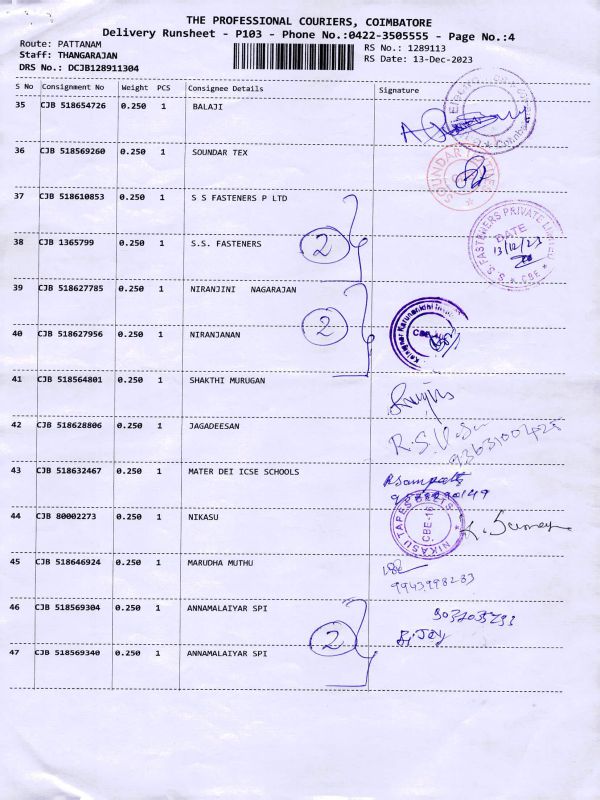 THE PROFESSIONAL COURIERS, COIMBATORE
Delivery Runsheet - P103 - Phone No.:0422-3505555 - Page No.:4
Route: PATTANAM RS No.: 1289113
Staff: THANGARAJAN RS Date: 13-Dec-2023
DRS No.: DCJB128911304
S No Consignment No Weight PCS Consignee Details Signature
35 CJB 518654726 0.250 1 BALAJI
36 CJB 518569260 0.250 1 SOUNDAR TEX
SOUNDAR
37 CJB 518610853 0.250 1 S S FASTENERS P LTD
38 CJB 1365799 0.250 1 S.S. FASTENERS 2
S. S. FASTENERS PRIVATE LIMITED * CBE *
DATE
13/12/23
39 CJB 518627785 0.250 1 NIRANJINI NAGARAJAN
40 CJB 518627956 0.250 1 NIRANJANAN 2
41 CJB 518564801 0.250 1 SHAKTHI MURUGAN
42 CJB 518628806 0.250 1 JAGADEESAN
43 CJB 518632467 0.250 1 MATER DEI ICSE SCHOOLS
44 CJB 80002273 0.250 1 NIKASU
NIKASU TAPES BELTS
CBE-16
45 CJB 518646924 0.250 1 MARUDHA MUTHU
9943998283
46 CJB 518569304 0.250 1 ANNAMALAIYAR SPI
2
47 CJB 518569340 0.250 1 ANNAMALAIYAR SPI